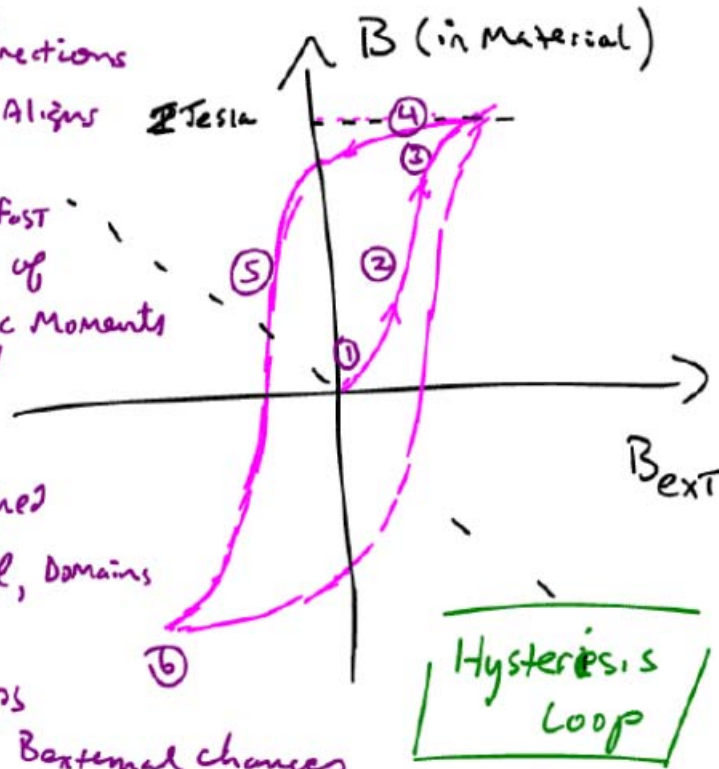 B (in Material)
rections
Aligns
2 Tesla
④
③
Fast
⑤
②
of
c Moments
①
Bext
ned
l, Domains
⑥
Hysteresis
Loop
ps
Bexternal changes